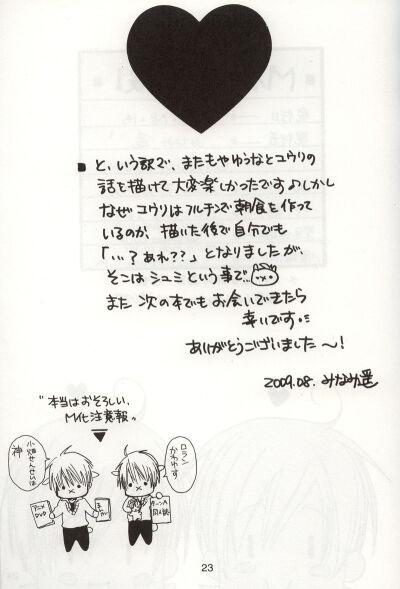 ■ と、いう訳で、またもやゆうなとユウリの
話を描けて大変楽しかったです♪しかし
なぜユウリはフルチンで朝食を作って
いるのか、描いた後で自分でも
「…?あれ??」となりましたが、
そこはシュミという事で…
また次の本でもお会いできたら
幸いです。
ありがとうございました〜!
2009.08. みなみ遥
"本当はおそろしい、
M化注意報"
小畑せんせいは
神
アニメ
DVD
ロラン
かわゆす
同人誌
23